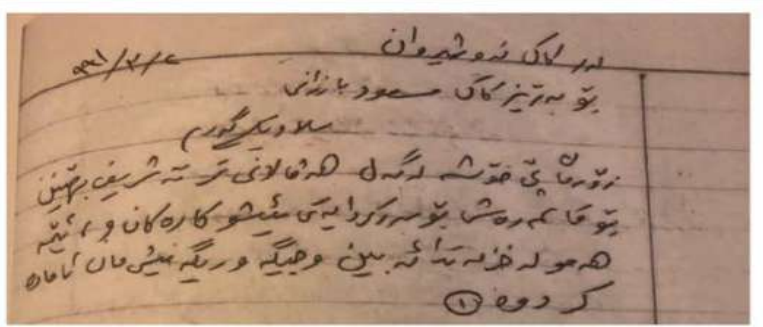 لەر کاک نەوشیروان
٩٩١/٣/٢
بۆ بەڕێز کاک مسعود بارزانی
سلاویکی گەرم
زۆرمان پێ خۆشە لەگەڵ هەڤاڵانی تر تەشریف بهێنن
بۆ سەرکردایەتی ئیش و کارەکان و ئێمە
هەمو لە خزمەتدا ئەبین وجیگە وریگە یشمان ئامادە
کردوە ①